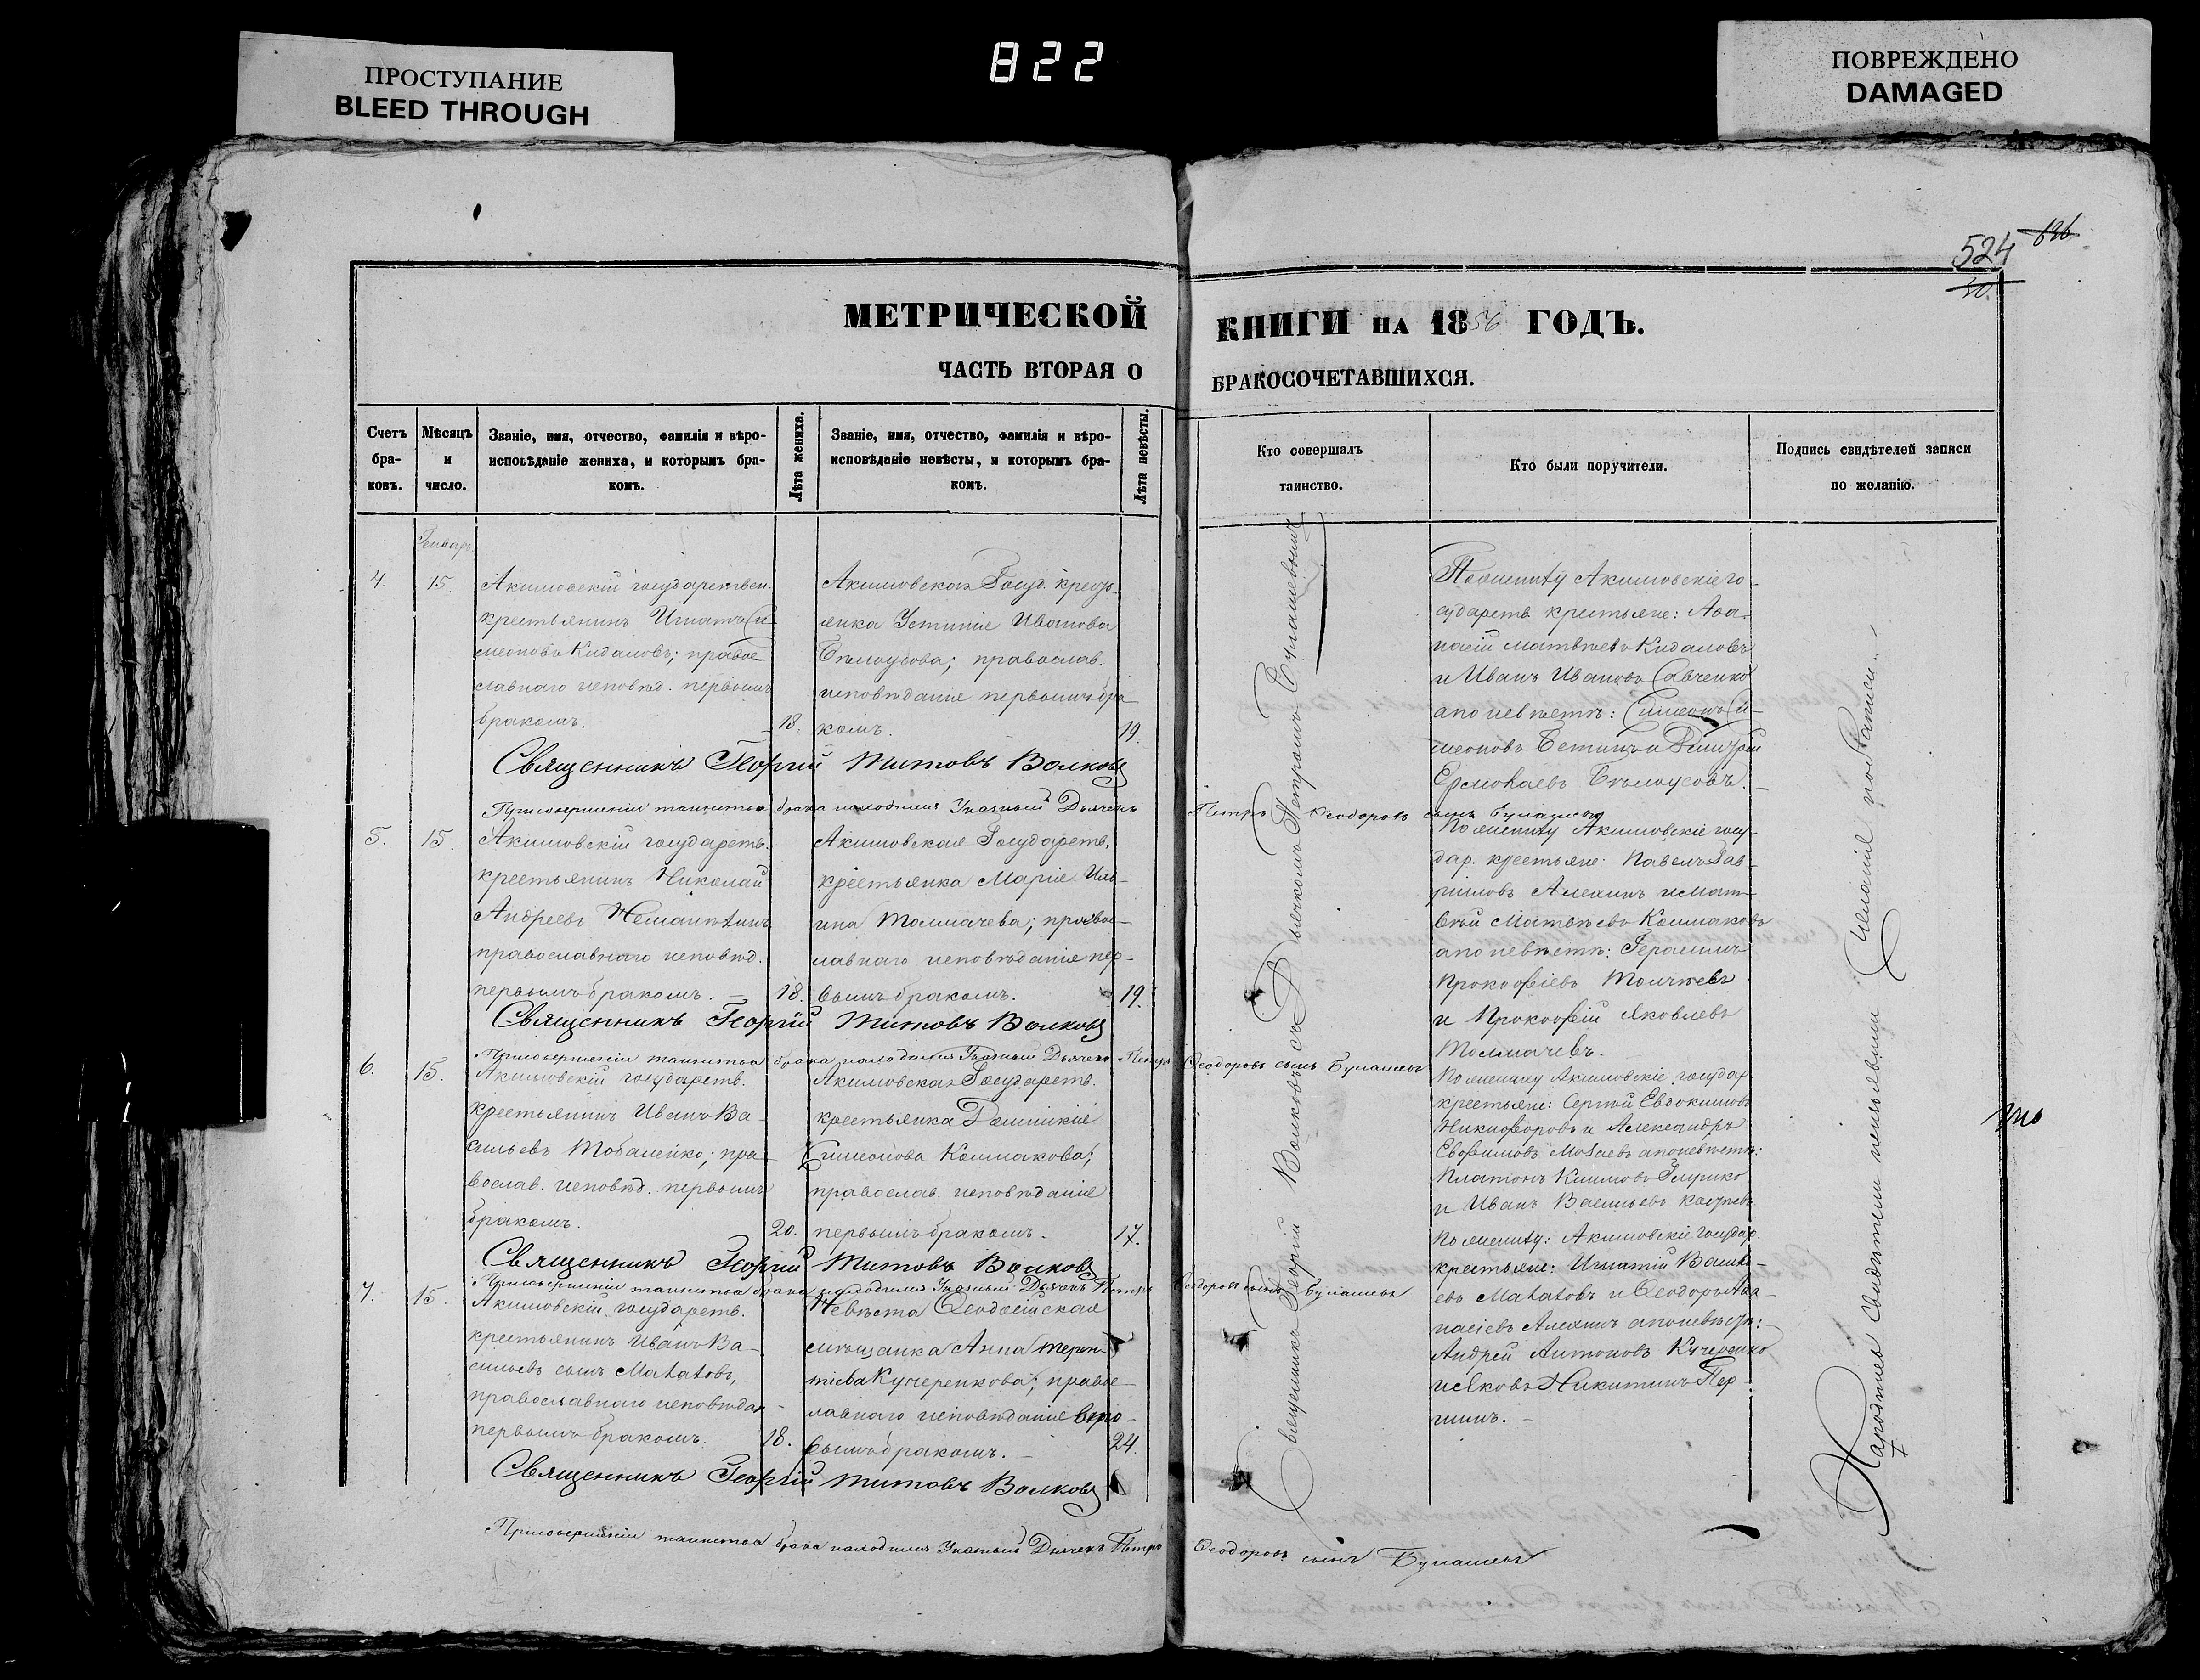 ПРОСТУПАНИЕ
BLEED THROUGH
822
ПОВРЕЖДЕНО
DAMAGED
524
МЕТРИЧЕСКОЙ
КНИГИ НА 1856 ГОДЪ.
ЧАСТЬ ВТОРАЯ О
БРАКОСОЧЕТАВШИХСЯ.
Счетъ бра-ковъ.
Мѣсяцъ и число.
Званіе, имя, отчество, фамилія и вѣро-
исповѣданіе жениха, и которымъ бра-
комъ.
Лѣта жениха.
Званіе, имя, отчество, фамилія и вѣро-
исповѣданіе невѣсты, и которымъ бра-
комъ.
Лѣта невѣсты.
Кто совершалъ
таинство.
Кто были поручители.
Подпись свидѣтелей записи
по желанію.
4.
15.
Акимовскій государствен.
крестьянинъ Игнатъ Си-
меоновъ Кидаловъ; право-
славнаго исповѣд. первымъ
бракомъ.
18.
Акимовская Госуд. кресть-
янка Устинія Иванова
Бѣлоусова; православ.
исповѣданія первымъ бра-
комъ.
19.
по женихѣ Акимовскіе го-
сударств. крестьяне: Аѳа-
насій Матвѣевъ Кидаловъ
и Иванъ Ивановъ Савченко
а по невѣстѣ: Симеонъ Си-
меоновъ
Бѣлоусовъ.
Священникъ Георгій Титовъ Волковъ
При совершеніи таинства брака находился Указный Дьячекъ Петръ Ѳеодоровъ сынъ
5.
15.
Акимовскій государств.
крестьянинъ Николай
Андреевъ
православнаго исповѣд.
первымъ бракомъ.
18.
Акимовская Государств.
крестьянка Марія Иль-
ина Толмачева; правос-
лавнаго исповѣданія пер-
вымъ бракомъ.
19.
По женихѣ Акимовскіе госу-
дар. крестьяне: Павелъ Гав-
риловъ Алехинъ и Мат-
вѣй Матвѣевъ Колмаковъ
а по невѣстѣ: Герасимъ
Прокофіевъ
и Прокофій Яковлевъ
Толмачевъ.
Священникъ Георгій Титовъ Волковъ
При совершеніи таинства брака находился Указный Дьячекъ Петръ Ѳеодоровъ сынъ
6.
15.
Акимовскій государств.
крестьянинъ Иванъ Ва-
сильевъ Тобаленко; пра-
вослав. исповѣд. первымъ
бракомъ.
20.
Акимовская Государств.
крестьянка Домникія
Симеонова Колмакова;
православ. исповѣданія
первымъ бракомъ.
17.
По жениху Акимовскіе государ.
крестьяне: Сергѣй Евдокимовъ
Никифоровъ и Александръ
Евфимовъ а по невѣстѣ:
Платонъ Климовъ
и Иванъ Васильевъ
Священникъ Георгій Титовъ Волковъ
При совершеніи таинства брака находился Указный Дьячекъ Петръ Ѳеодоровъ сынъ
7.
15.
Акимовскій государств.
крестьянинъ Иванъ Ва-
сильевъ сынъ
православнаго исповѣдан.
первымъ бракомъ.
18.
Невѣста Ѳеодосійская
мѣщанка Анна Терен-
тіева Кучеренкова; право-
славнаго исповѣданія
бракомъ.
24.
По женихѣ: Акимовскіе государ.
крестьяне: Игнатій Василь-
евъ и Ѳеодоръ Аѳа-
насіевъ Алехинъ а по невѣстѣ:
Андрей Антоновъ Кучеренко
и Яковъ Никитинъ Пер-
Священникъ Георгій Титовъ Волковъ
При совершеніи таинства брака находился Указный Дьячекъ Петръ Ѳеодоровъ сынъ
Священникъ Георгій Волковъ съ Дьячкомъ Петромъ